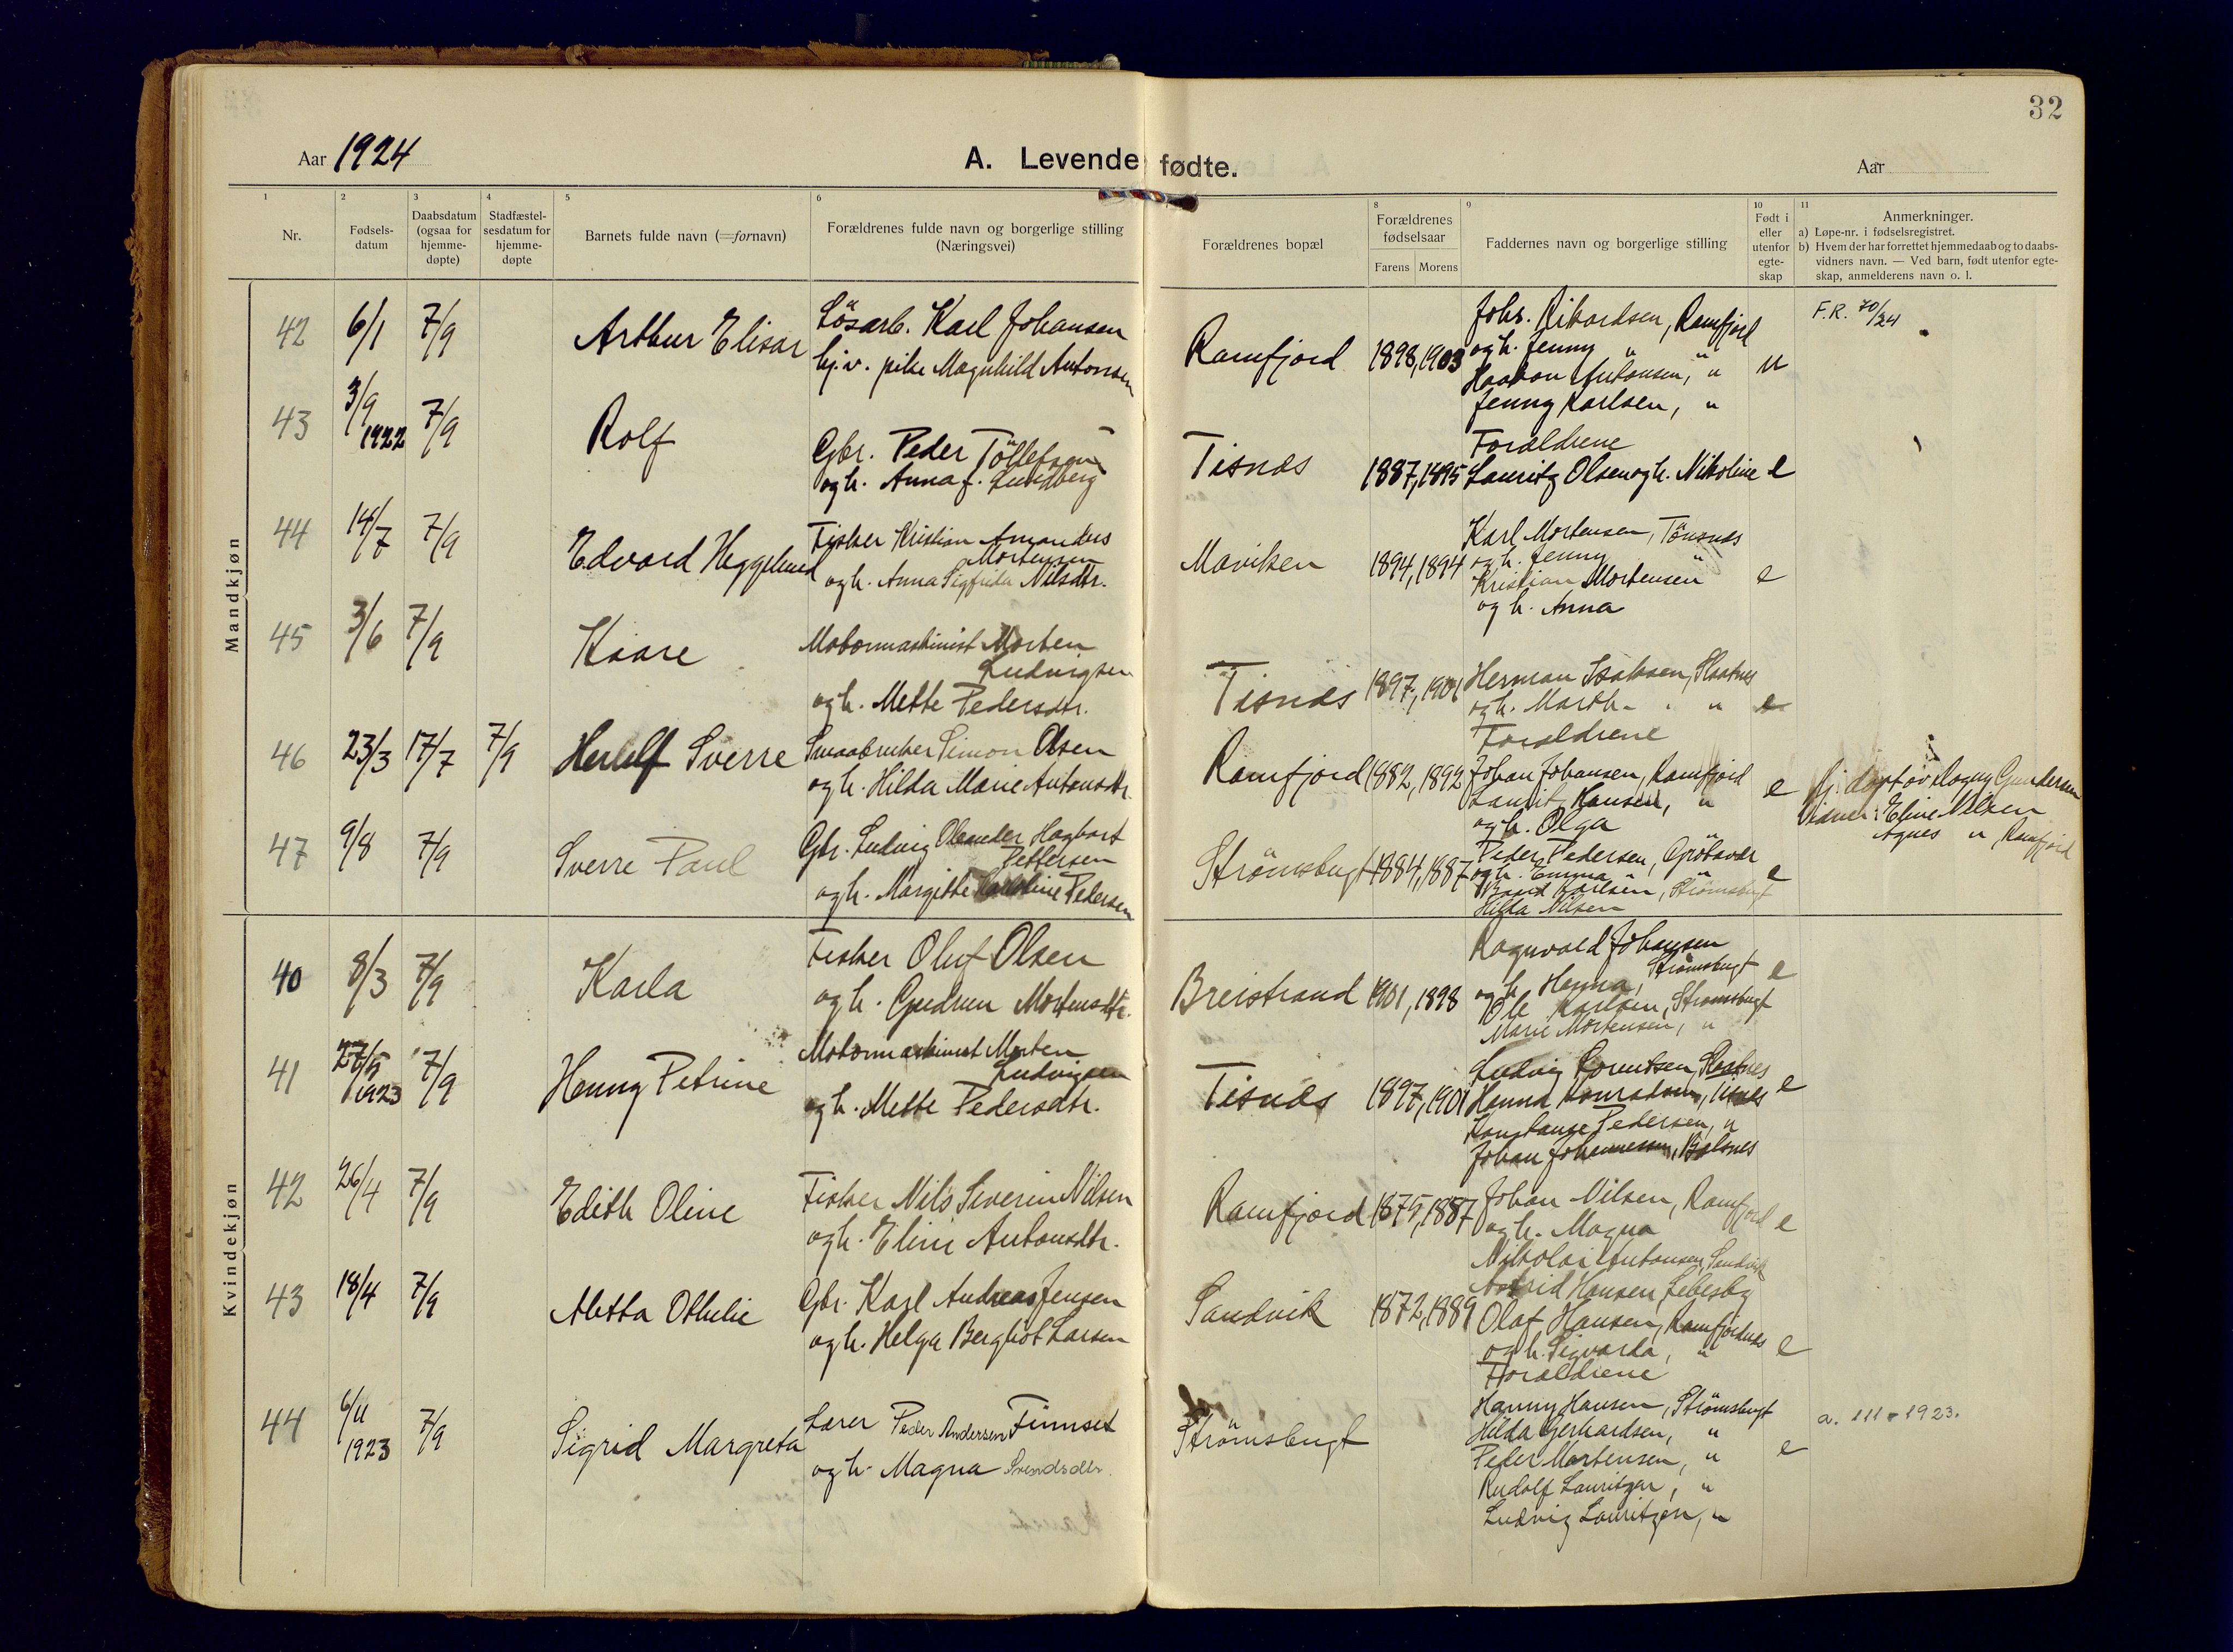 32
Aar 1924
A. Levende fødte.
Aar
1 2 3 4 5 6
Nr.
Fødsels-
datum
Daabsdatum
(ogsaa for
hjemme-
døpte)
Stadfæstel-
sesdatum for
hjemme-
døpte
Barnets fulde navn (=fornavn)
Forældrenes fulde navn og borgerlige stilling
(Næringsvei)
8 9 10 11
Forældrenes bopæl
Forældrenes
fødselsaar
Farens Morens
Faddernes navn og borgerlige stilling
Født i
eller
utenfor
egte-
skap
Anmerkninger.
a) Løpe-nr. i fødselsregistret.
b) Hvem der har forrettet hjemmedaab og to daabs-
vidners navn. — Ved barn, født utenfor egte-
skap, anmelderens navn o. l.
Mandkjøn
42 6/1 7/9 Arthur Elisar
Lösarb. Karl Johansen
hj.v. pike Magnhild Antonsen
Ramfjord 1898, 1903
Johs. Rikardsen, Ramfjord
og h. Jenny "
Haakon Antonsen, "
Jenny Karlsen, "
u
F.R. 70/24
43 3/9 1922 7/9 Rolf
Gbr. Peder Töllefsen
og h. Anna f. Lundberg
Tisnes 1887, 1895
Forældrene
Lauritz Olsen og h. Nikoline
e
44 14/7 7/9 Edvard Heggelund
Fisker Kristian Amandus
Mortensen
og h. Anna Sigfrida Nilsdtr.
Maviken 1894, 1894
Karl Mortensen, Tönsnes
og h. Jenny "
Kristian Mortensen
og h. Anna
e
45 3/6 7/9 Kaare
Motormaskinist Morten
Ludvigsen
og h. Mette Pedersdtr.
Tisnes 1897, 1901
Herman Isaksen, Slaatnes
og h. Marth. "
Forældrene
e
46 23/3 17/7 7/9 Herlolf Sverre
Smaabruker Simon Olsen
og h. Hilda Marie Antonsdtr.
Ramfjord 1882, 1892
Johan Johansen, Ramfjord
Laurit Hansen, "
og h. Olga
e
hj. döpt av Dagny Gundersen
Vidner: Eline Nilsen
Agnes " Ramfjord
47 9/8 7/9 Sverre Paul
Gbr. Ludvig Oleander Hagbart
Peffersen
og h. Margitte Karoline Pedersen
Strömsbugt 1884, 1887
Peder Pedersen, Grötavær
og h. Emma "
Karlsen, Strömsbugt
Hilda Nilsen
e
Kvindekjøn
40 8/3 7/9 Karla
Fisker Oluf Olsen
og h. Gudrun Mortensdtr.
Breistrand 1901, 1898
Ragnvald Johansen
og h. Hanna, Strömsbugt
Ole Karlsen, Strömsbugt
Marie Mortensen, "
e
41 27/5 1923 7/9 Henny Petrine
Motormaskinist Morten
Ludvigsen
og h. Mette Pedersdtr.
Tisnes 1897, 1901
Ludvig Lorentsen, Slaatnes
Hanna Konradsen, Tisnes
Konstanse Pedersen, "
Johan Johannesen, Balsnes
e
42 26/4 7/9 Edith Oline
Fisker Nils Severin Nilsen
og h. Elini Antonsdtr.
Ramfjord 1875, 1887
Johan Nilsen, Ramfjord
og h. Magna
Nikolai Antonsen, Sandvik
Astrid Hansen, Lebesby
e
43 18/4 7/9 Aletta Othelie
Gbr. Karl Andreas Jensen
og h. Helga Bergliot Larsen
Sandvik 1872, 1889
Olaf Hansen, Ramfjordnes
og h. Sigvarda, "
Forældrene
e
44 6/11 1923 7/9 Sigrid Margreta
Lærer Peder Andersen Finnset
og h. Magna Svendsdtr.
Strömsbugt
Hanny Hansen, Strömsbugt
Hilda Gerhardsen, "
Peder Mortensen, "
Rudolf Lauritzen, "
Ludvig Lauritzen, "
e
a. 111 - 1923.